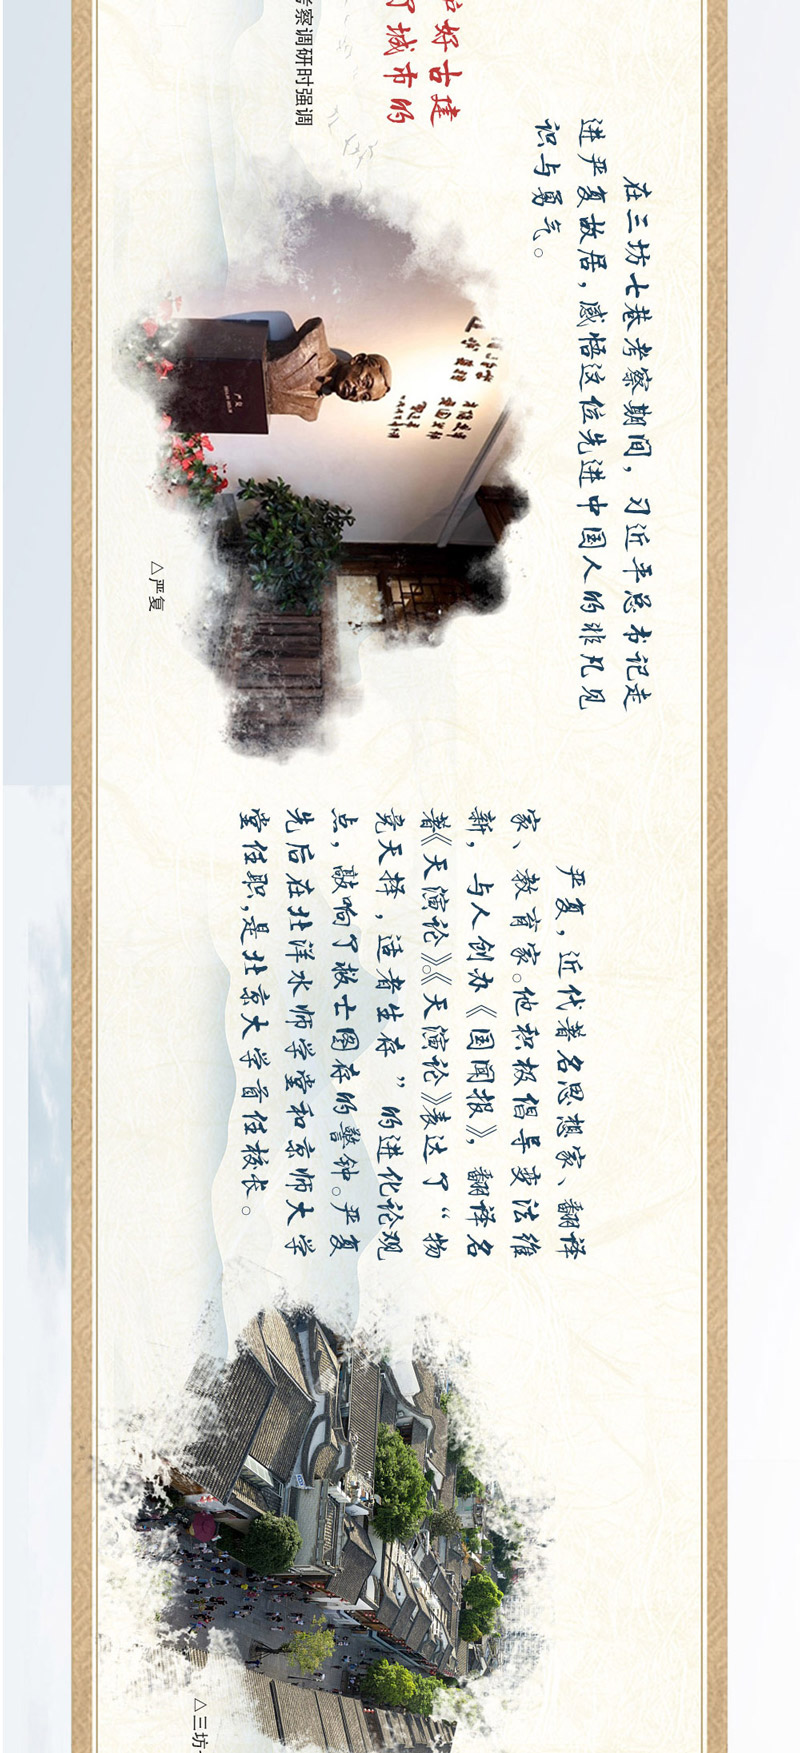 好古建
了城市的
考察调研时强调
在三坊七巷考察期间，习近平总书记走
进严复故居，感悟这位先进中国人的非凡见
识与勇气。
△严复
严复，近代著名思想家、翻译
家、教育家。他积极倡导变法维
新，与人创办《国闻报》，翻译名
著《天演论》。《天演论》表达了“物
竞天择，适者生存”的进化论观
点，敲响了救亡图存的警钟。严复
先后在北洋水师学堂和京师大学
堂任职，是北京大学首任校长。
△三坊